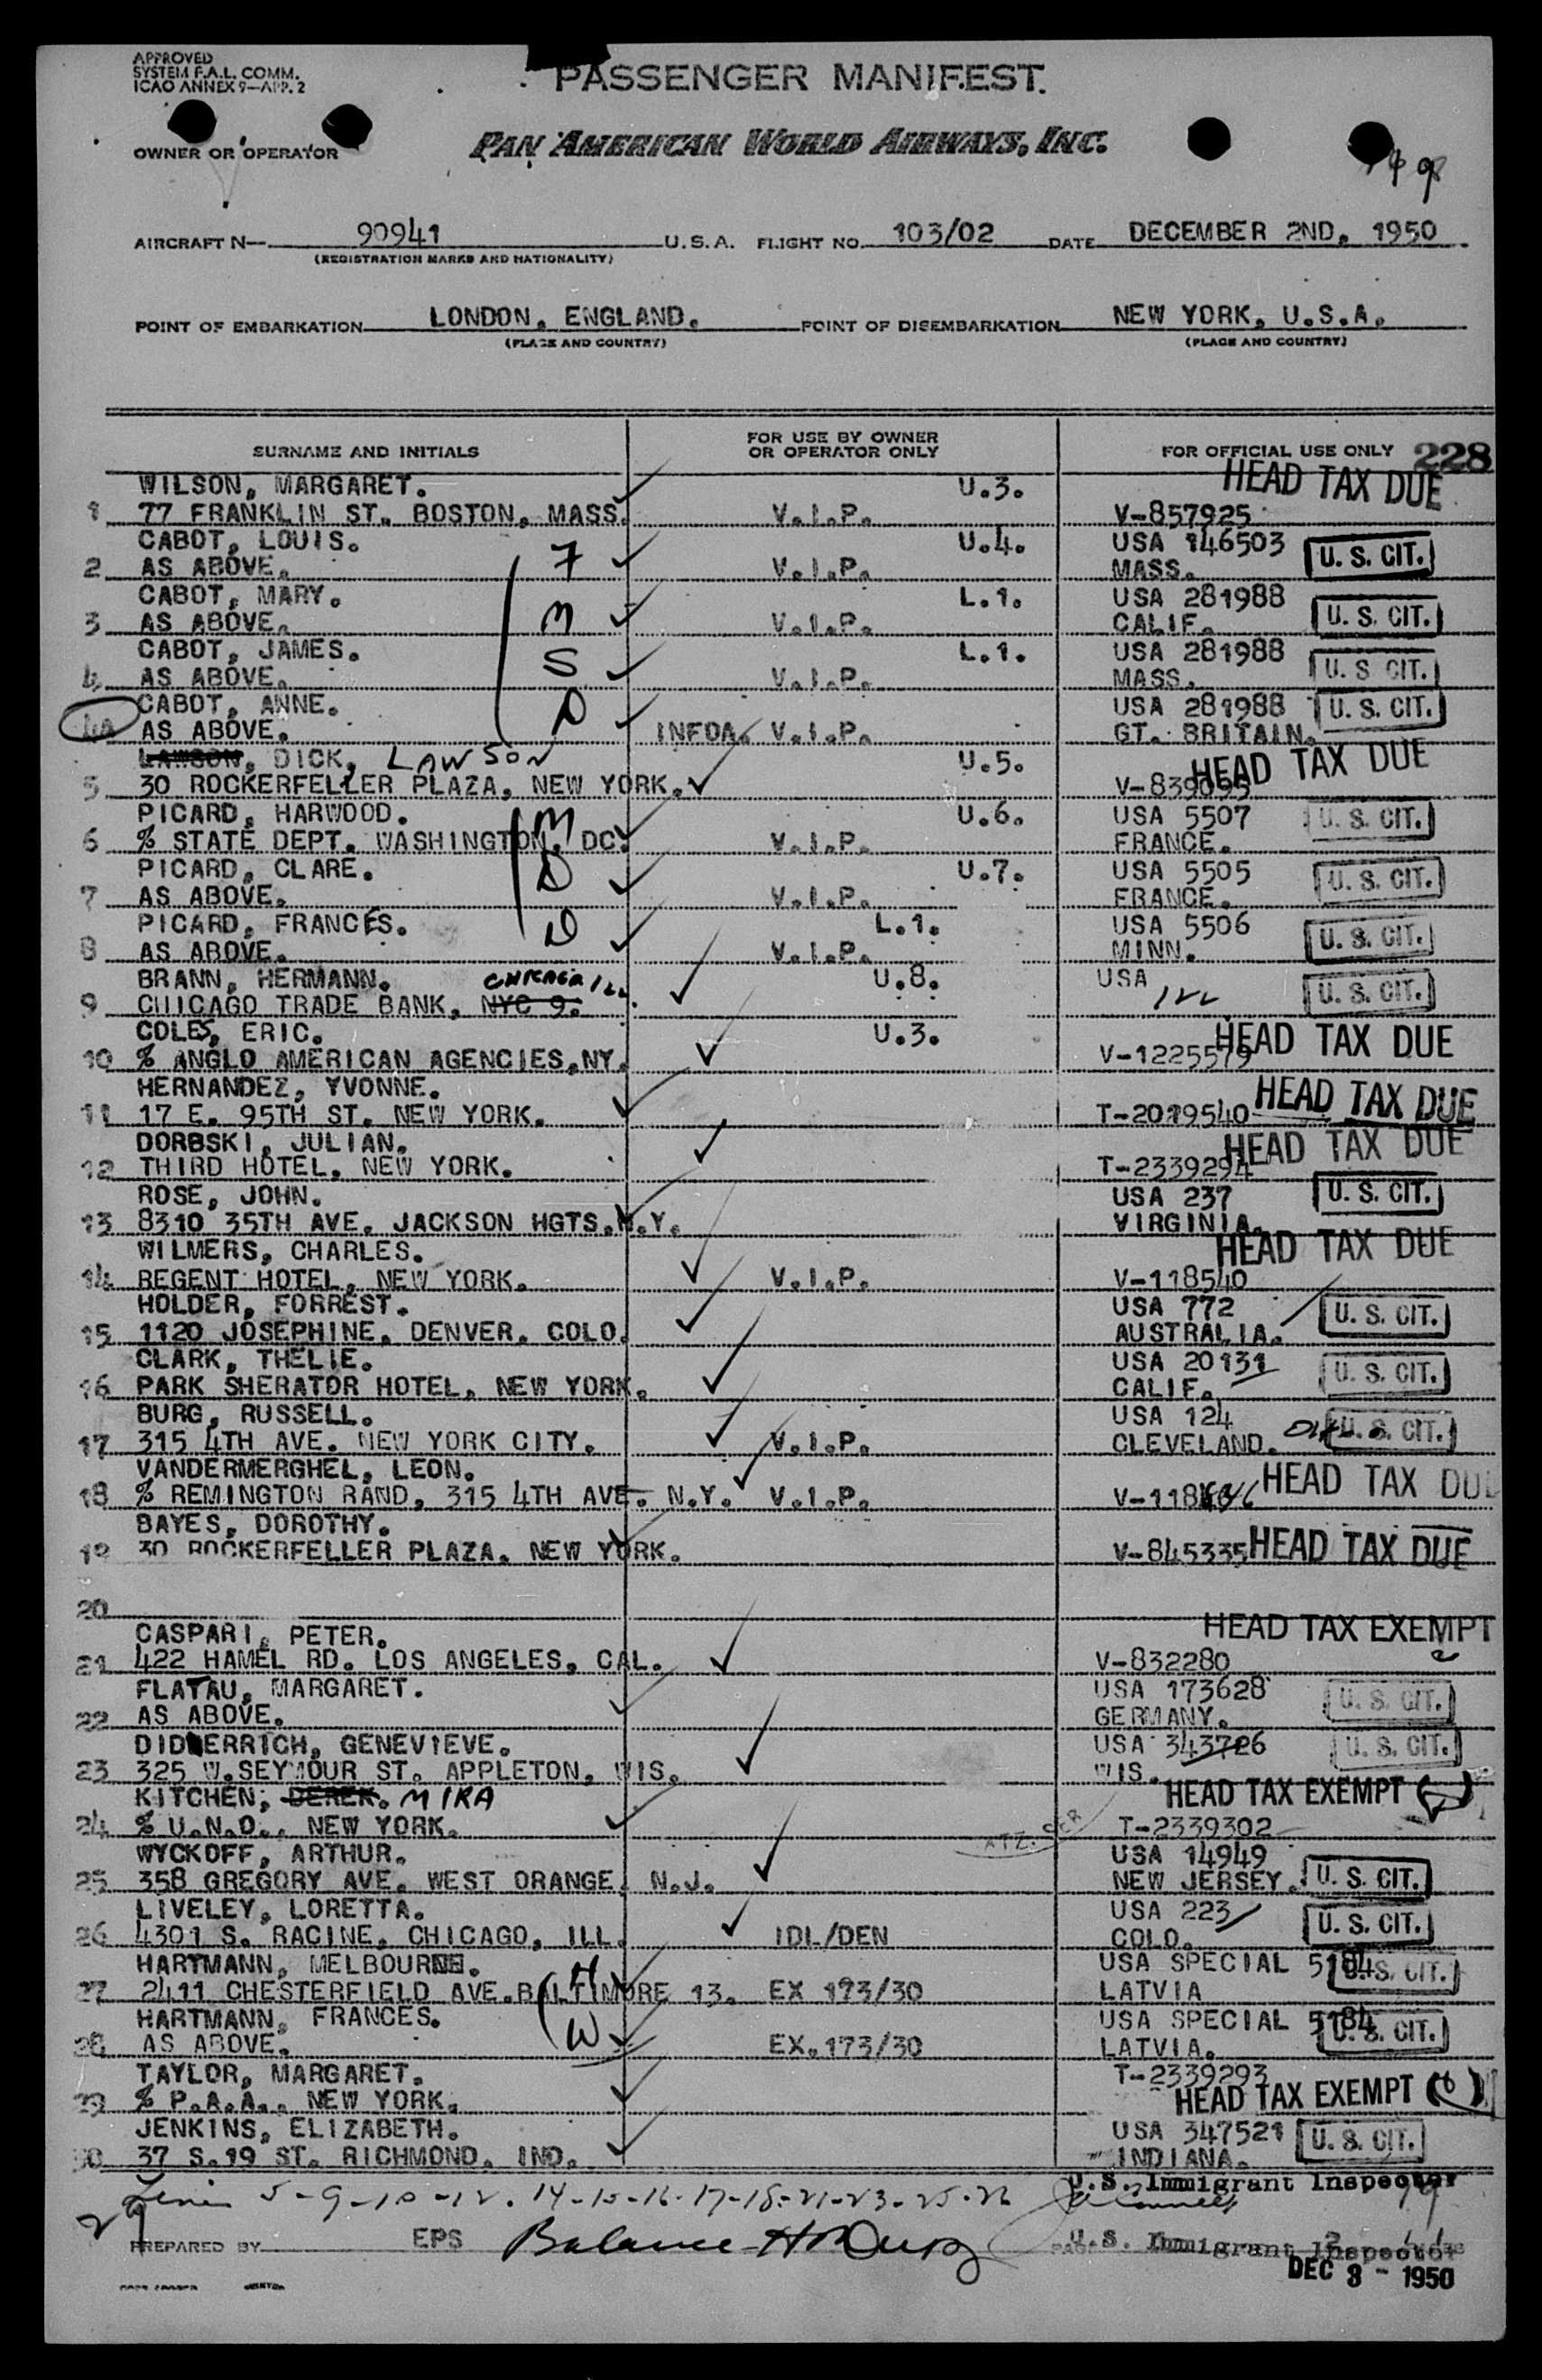 APPROVED
SYSTEM F.A.L. COMM.
ICAO ANNEX 9—APP. 2
PASSENGER MANIFEST.
OWNER OR OPERATOR
PAN AMERICAN WORLD AIRWAYS, INC.
AIRCRAFT N— 90941 U.S.A. FLIGHT NO. 103/02 DATE DECEMBER 2ND, 1950
(REGISTRATION MARKS AND NATIONALITY)
POINT OF EMBARKATION LONDON, ENGLAND. POINT OF DISEMBARKATION NEW YORK, U.S.A.
(PLACE AND COUNTRY) (PLACE AND COUNTRY)
SURNAME AND INITIALS FOR USE BY OWNER OR OPERATOR ONLY FOR OFFICIAL USE ONLY 228
WILSON, MARGARET. U.3. HEAD TAX DUE
1 77 FRANKLIN ST. BOSTON, MASS. V.I.P. V-857925
CABOT, LOUIS. U.4. USA 146503 U. S. CIT.
2 AS ABOVE. F V.I.P. MASS.
CABOT, MARY. L.1. USA 281988 U. S. CIT.
3 AS ABOVE. M V.I.P. CALIF.
CABOT, JAMES. L.1. USA 281988 U. S. CIT.
4 AS ABOVE. S V.I.P. MASS.
CABOT, ANNE. USA 281988 U. S. CIT.
4A AS ABOVE. D INFDA. V.I.P. GT. BRITAIN.
LAWSON, DICK, LAWSON U.5. HEAD TAX DUE
5 30 ROCKERFELLER PLAZA, NEW YORK. V-839095
PICARD, HARWOOD. M U.6. USA 5507 U. S. CIT.
6 % STATE DEPT. WASHINGTON, DC. V.I.P. FRANCE.
PICARD, CLARE. D U.7. USA 5505 U. S. CIT.
7 AS ABOVE. V.I.P. FRANCE.
PICARD, FRANCES. D L.1. USA 5506 U. S. CIT.
8 AS ABOVE. V.I.P. MINN.
BRANN, HERMANN. CHICAGO ILL. U.8. USA
9 CHICAGO TRADE BANK, NYC 9. ILL U. S. CIT.
COLES, ERIC. U.3. HEAD TAX DUE
10 % ANGLO AMERICAN AGENCIES,NY. V-1225579
HERNANDEZ, YVONNE. HEAD TAX DUE
11 17 E. 95TH ST. NEW YORK. T-2019540
DORBSKI, JULIAN. HEAD TAX DUE
12 THIRD HOTEL, NEW YORK. T-2339294
ROSE, JOHN. USA 237 U. S. CIT.
13 8310 35TH AVE. JACKSON HGTS.N.Y. VIRGINIA.
WILMERS, CHARLES. HEAD TAX DUE
14 REGENT HOTEL, NEW YORK. V.I.P. V-118540
HOLDER, FORREST. USA 772 U. S. CIT.
15 1120 JOSEPHINE, DENVER, COLO. AUSTRALIA.
CLARK, THELIE. USA 20131 U. S. CIT.
16 PARK SHERATOR HOTEL, NEW YORK. CALIF.
BURG, RUSSELL. USA 124 U. S. CIT.
17 315 4TH AVE. NEW YORK CITY. V.I.P. CLEVELAND.
VANDERMERGHEL, LEON. HEAD TAX DUE
18 % REMINGTON RAND, 315 4TH AVE. N.Y. V.I.P. V-118
BAYES, DOROTHY.
19 30 ROCKERFELLER PLAZA, NEW YORK. V-845335 HEAD TAX DUE
20
CASPARI, PETER. HEAD TAX EXEMPT
21 422 HAMEL RD. LOS ANGELES, CAL. V-832280
FLATAU, MARGARET. USA 173628 U. S. CIT.
22 AS ABOVE. GERMANY.
DIDIERRICH, GENEVIEVE. USA 343726 U. S. CIT.
23 325 W.SEYMOUR ST. APPLETON, WIS. WIS.
KITCHEN, DEREK. MIRA HEAD TAX EXEMPT
24 % U.N.O., NEW YORK. T-2339302
WYCKOFF, ARTHUR. USA 14949
25 358 GREGORY AVE. WEST ORANGE, N.J. NEW JERSEY. U. S. CIT.
LIVELEY, LORETTA. USA 223 U. S. CIT.
26 4301 S. RACINE, CHICAGO, ILL. IDL/DEN COLO.
HARTMANN, MELBOURNE. H USA SPECIAL 5184 U. S. CIT.
27 2411 CHESTERFIELD AVE.BALTIMORE 13. EX 173/30 LATVIA
HARTMANN, FRANCES. W USA SPECIAL 5184 U. S. CIT.
28 AS ABOVE. EX.173/30 LATVIA.
TAYLOR, MARGARET. T-2339293
29 % P.A.A., NEW YORK. HEAD TAX EXEMPT
JENKINS, ELIZABETH. USA 347521 U. S. CIT.
30 37 S.19 ST. RICHMOND, IND. INDIANA.
5-9-10-12. 14-15-16-17-18-21-23-25-26 U.S. Immigrant Inspector
29
PREPARED BY EPS Balance U.S. Immigrant Inspector
DEC 3 - 1950